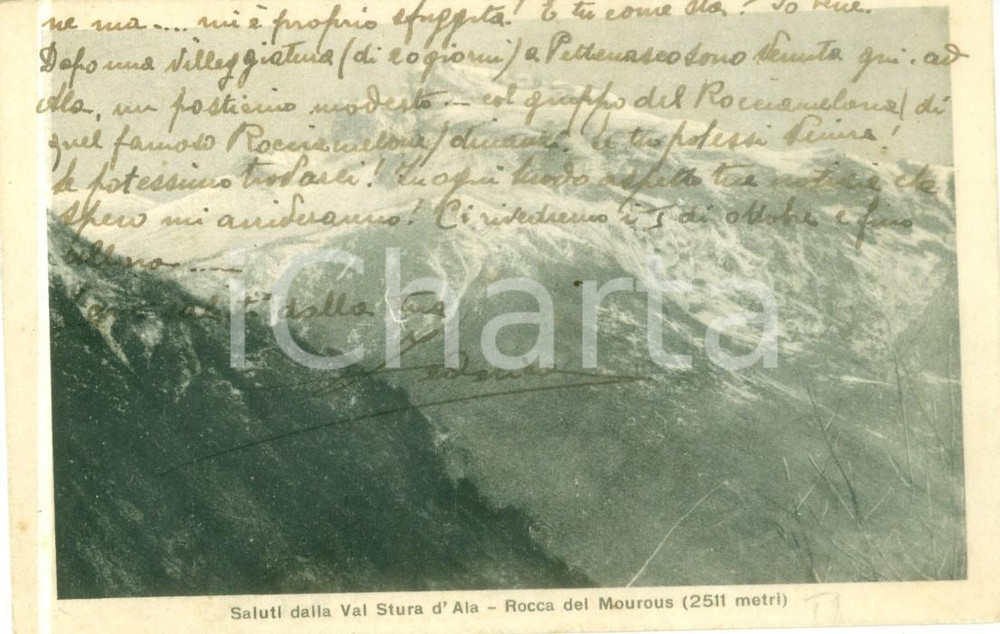 ne ma.... mi è proprio sfuggita! E tu come stai? Io bene.
Dopo una villeggiatura (di 20 giorni) a Pettenasco sono venuta qui. ad
Ala, un posticino modesto — col gruppo del Rocciamelone (di
quel famoso Rocciamelone) dinanzi. Se tu potessi venire!
Se potessimo trovarci! In ogni modo aspetto tue notizie che
spero mi arrideranno! Ci rivedremo i 5 di ottobre e fino
allora ....
saluti dalla tua
iCharta
Saluti dalla Val Stura d'Ala - Rocca del Mourous (2511 metri)